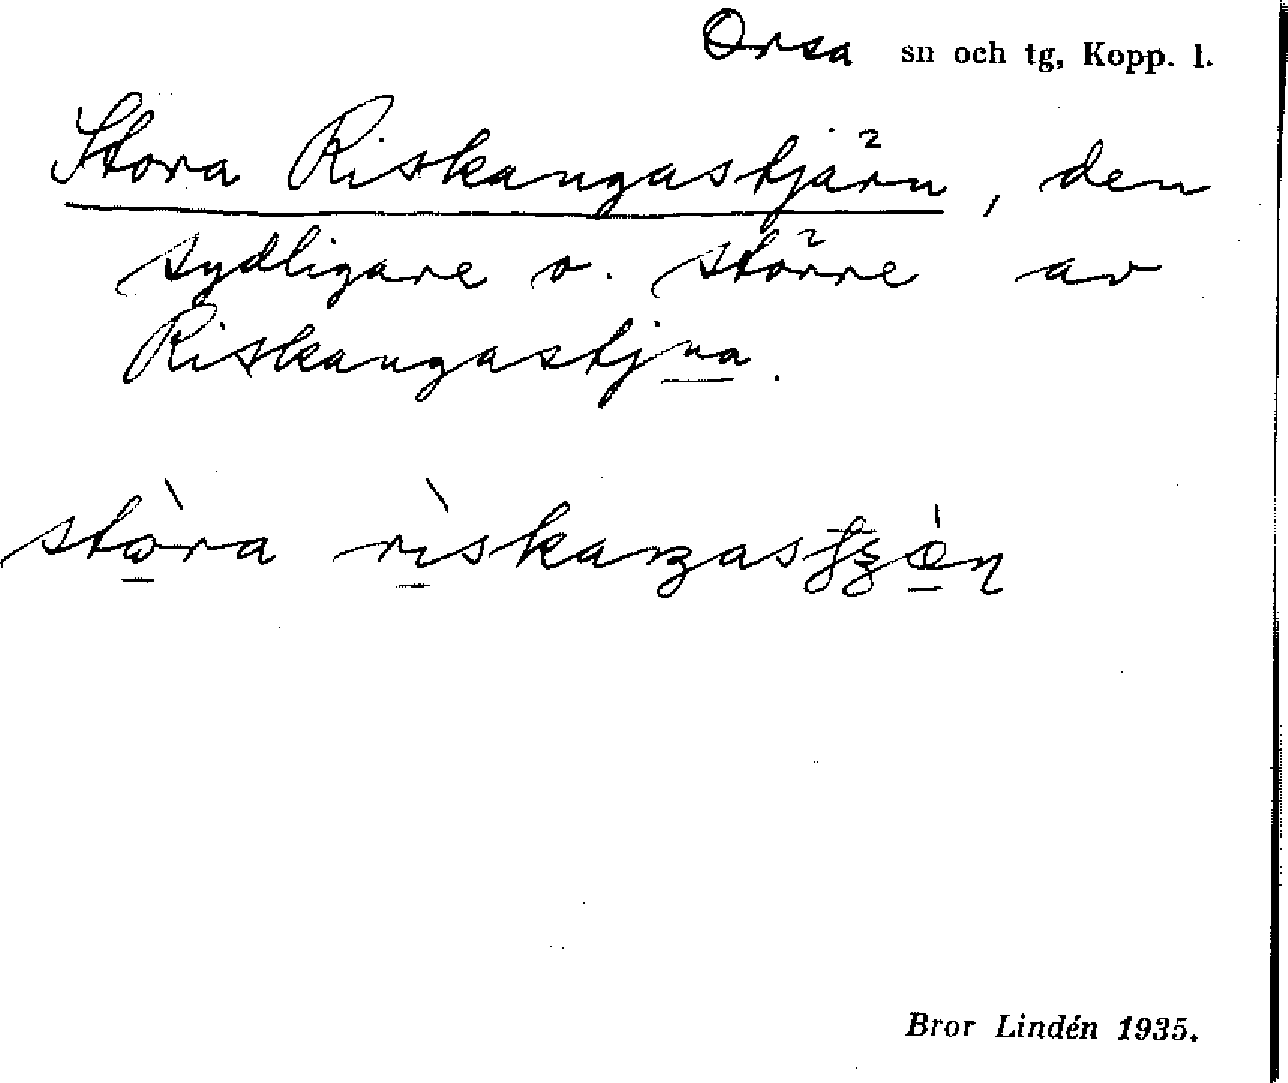 Orsa sn och tg, Kopp. l.
Stora Riskangastjärn, den
sydligare o. större av
Riskangastjna.
stòra rìskaŋas
Bror Lindén 1935.